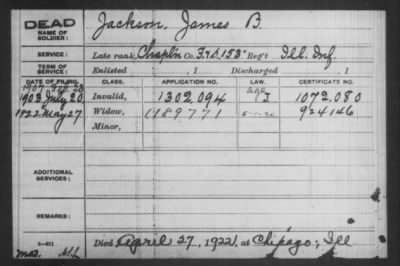 DEAD Jackson, James B.
NAME OF SOLDIER:
SERVICE: Late rank, Chaplin Co. F&S, 153" Reg't Ill. Inf.
TERM OF SERVICE: Enlisted , 1 Discharged , 1
DATE OF FILING. CLASS. APPLICATION NO. CERTIFICATE NO.
1907 Feb. 20
1903 July 20, Invalid, 1302.094 age I 1072.080
1922 May 27 Widow, 1189771 5-1-20 924146
Minor,
ADDITIONAL SERVICES:
REMARKS:
6-401
Died April 27, 1922, at Chicago, Ill